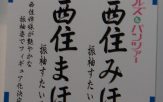 ガールズ&パンツァー
西住みほ
振袖すたいる
西住まほ
振袖すたいる
西住姉妹が艶やかな
振袖姿でフィギュア化決定